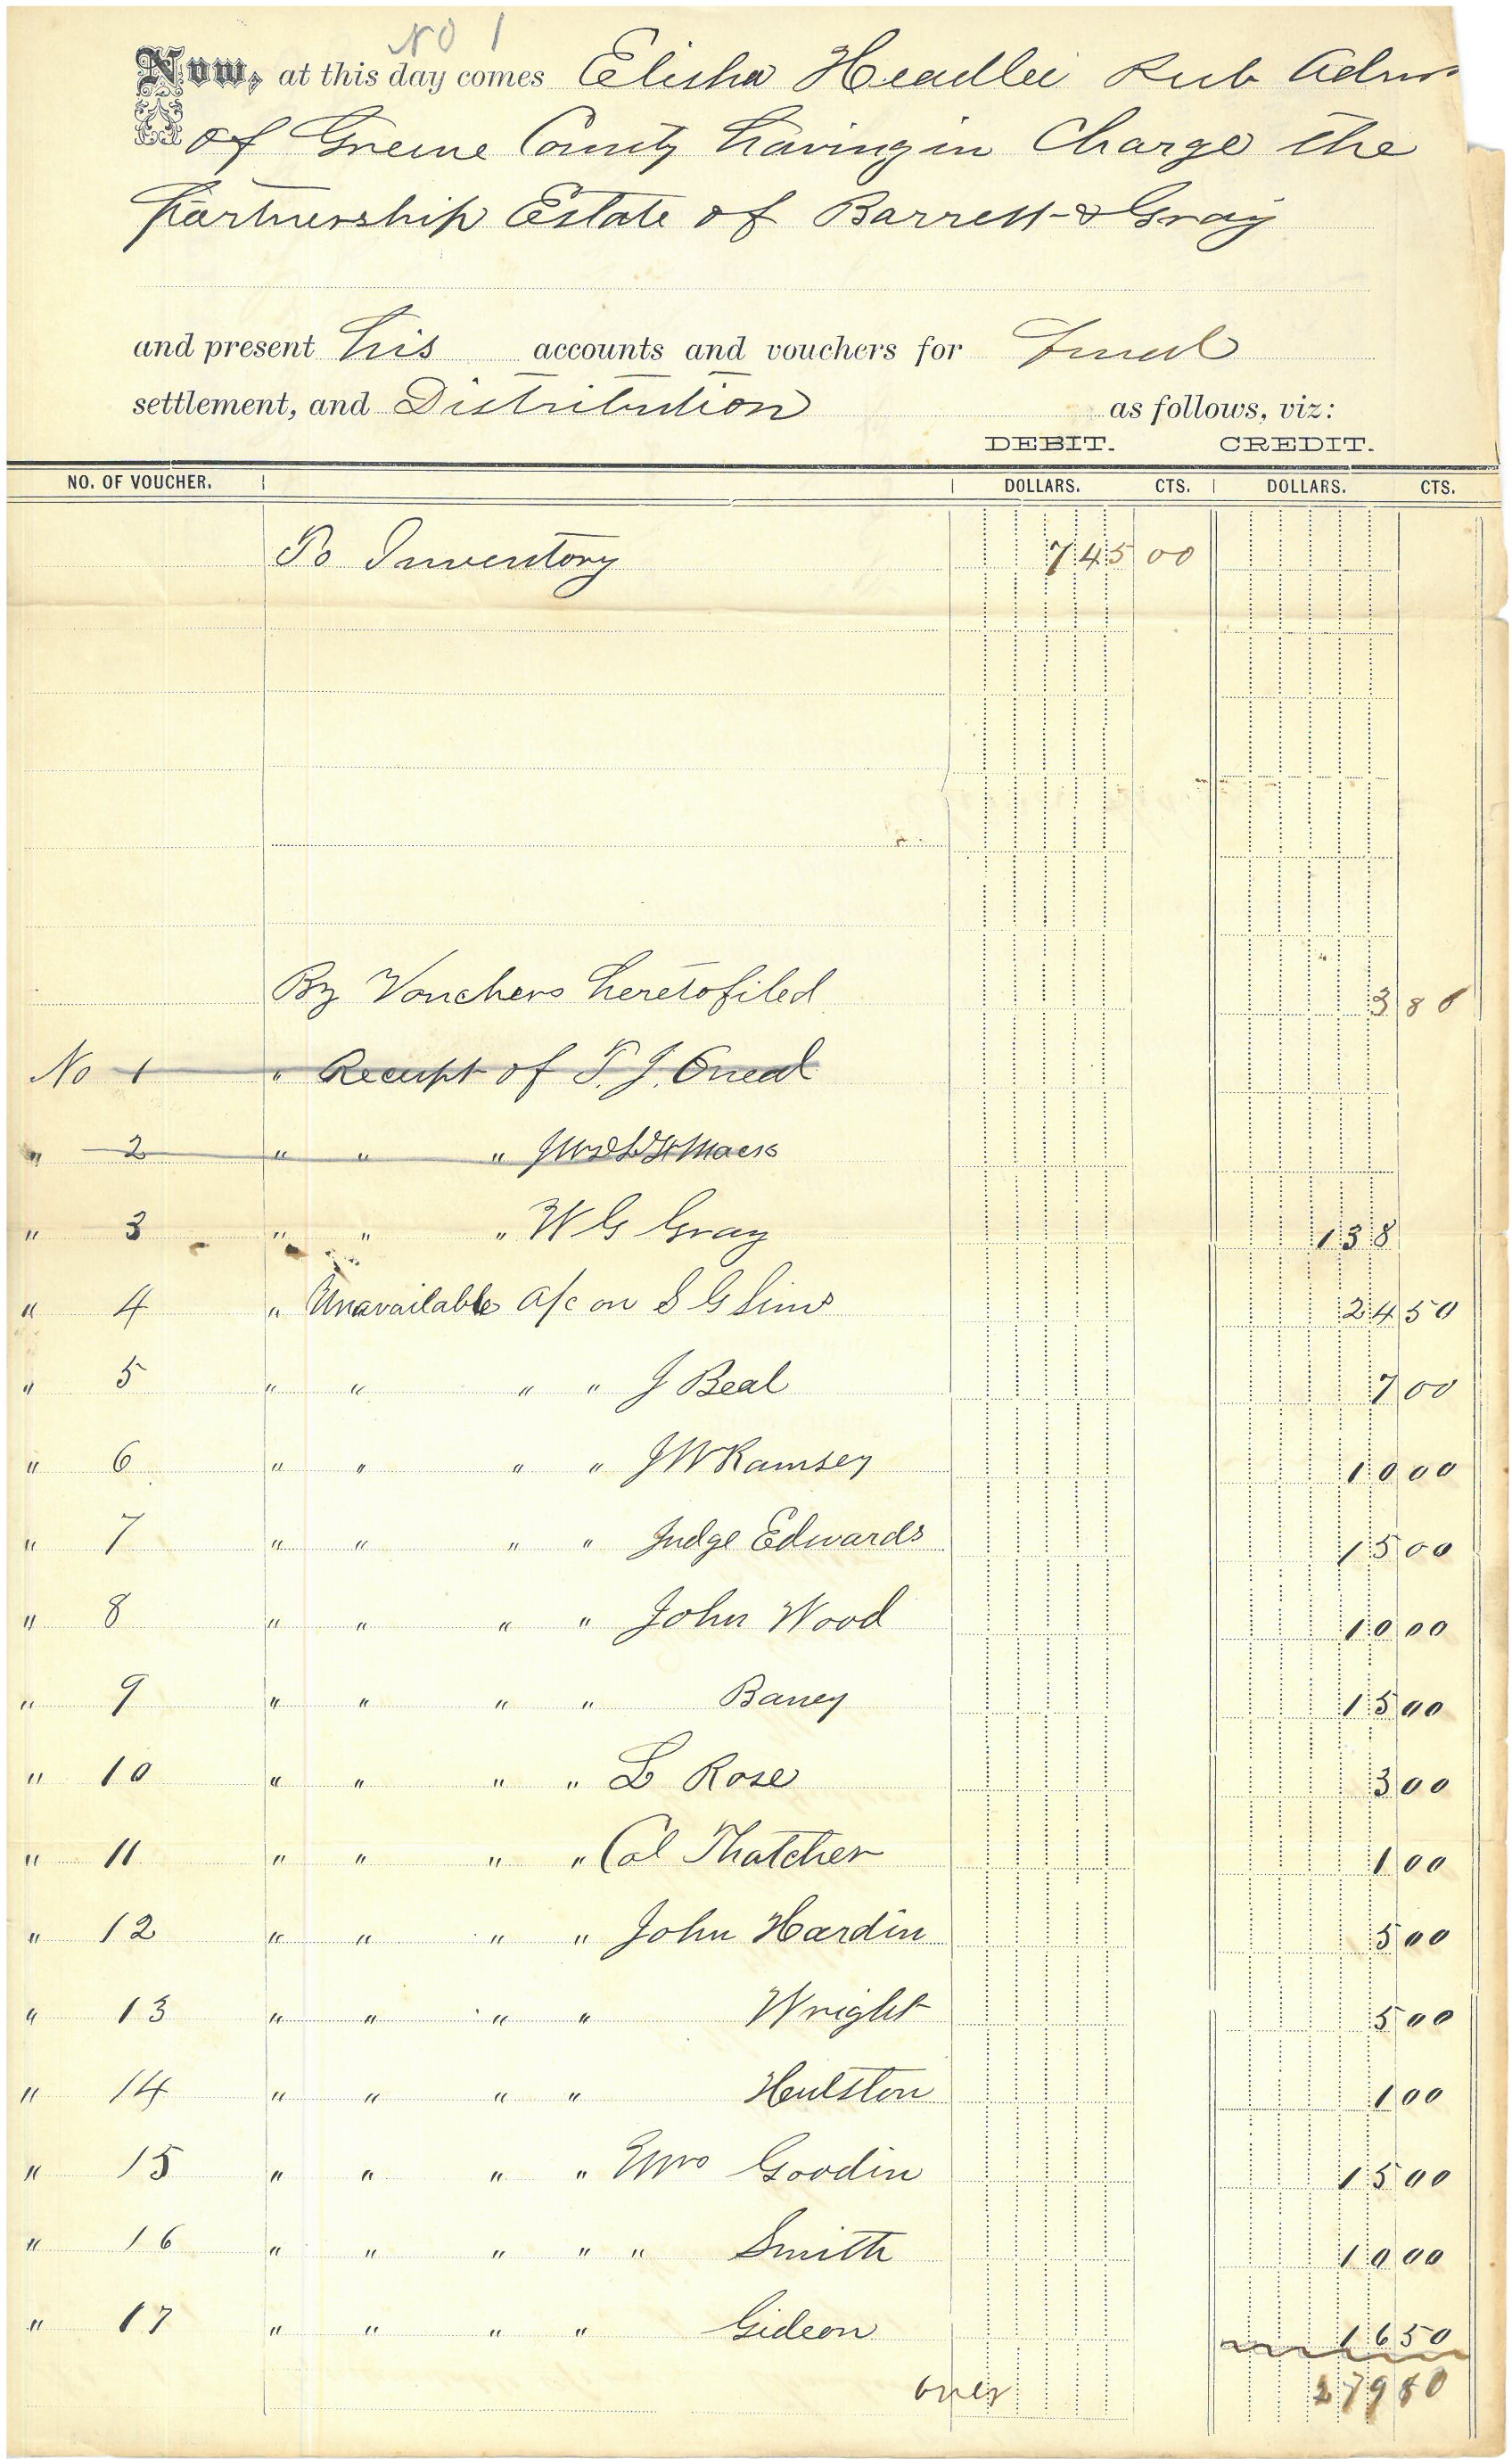 No 1
Now, at this day comes Elisha Headlee Pub Admr
of Greene County having in Charge the
Partnership Estate of Barrett & Gray
and present his accounts and vouchers for Final
settlement, and Distribution as follows, viz:
DEBIT. CREDIT.
NO. OF VOUCHER. DOLLARS. CTS. DOLLARS. CTS.
To Inventory 745 00
By Vouchers heretofiled 3 80
No 1 " Receipt of T. J. Oneal
" 2 " " "
" 3 " " " W G Gray 138
" 4 " Unavailable a/c on S G Sims 24 50
" 5 " " " " J Beal 7 00
" 6 " " " " J W Ramsey 10 00
" 7 " " " " Judge Edwards 15 00
" 8 " " " " John Wood 10 00
" 9 " " " " Baney 15 00
" 10 " " " " L Rose 3 00
" 11 " " " " Col Thatcher 1 00
" 12 " " " " John Hardin 5 00
" 13 " " " " Wright 5 00
" 14 " " " " Hulston 1 00
" 15 " " " " Goodin 15 00
" 16 " " " " " Smith 10 00
" 17 " " " " Gideon 16 50
over 279 80